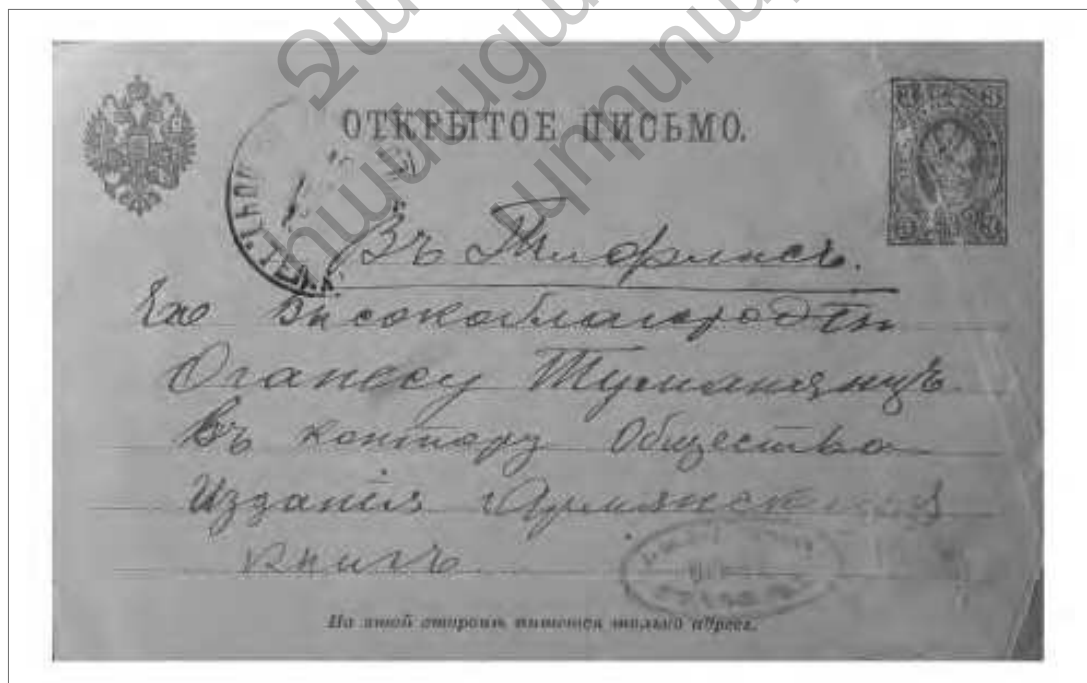 ОТКРЫТОЕ ПИСЬМО.
Въ Тифлисъ.
Его Высокоблагородію
Оганесу Туманянцъ
Въ контору Общество
Изданія Армянскихъ
книгъ
На этой сторонѣ пишется только адресъ.